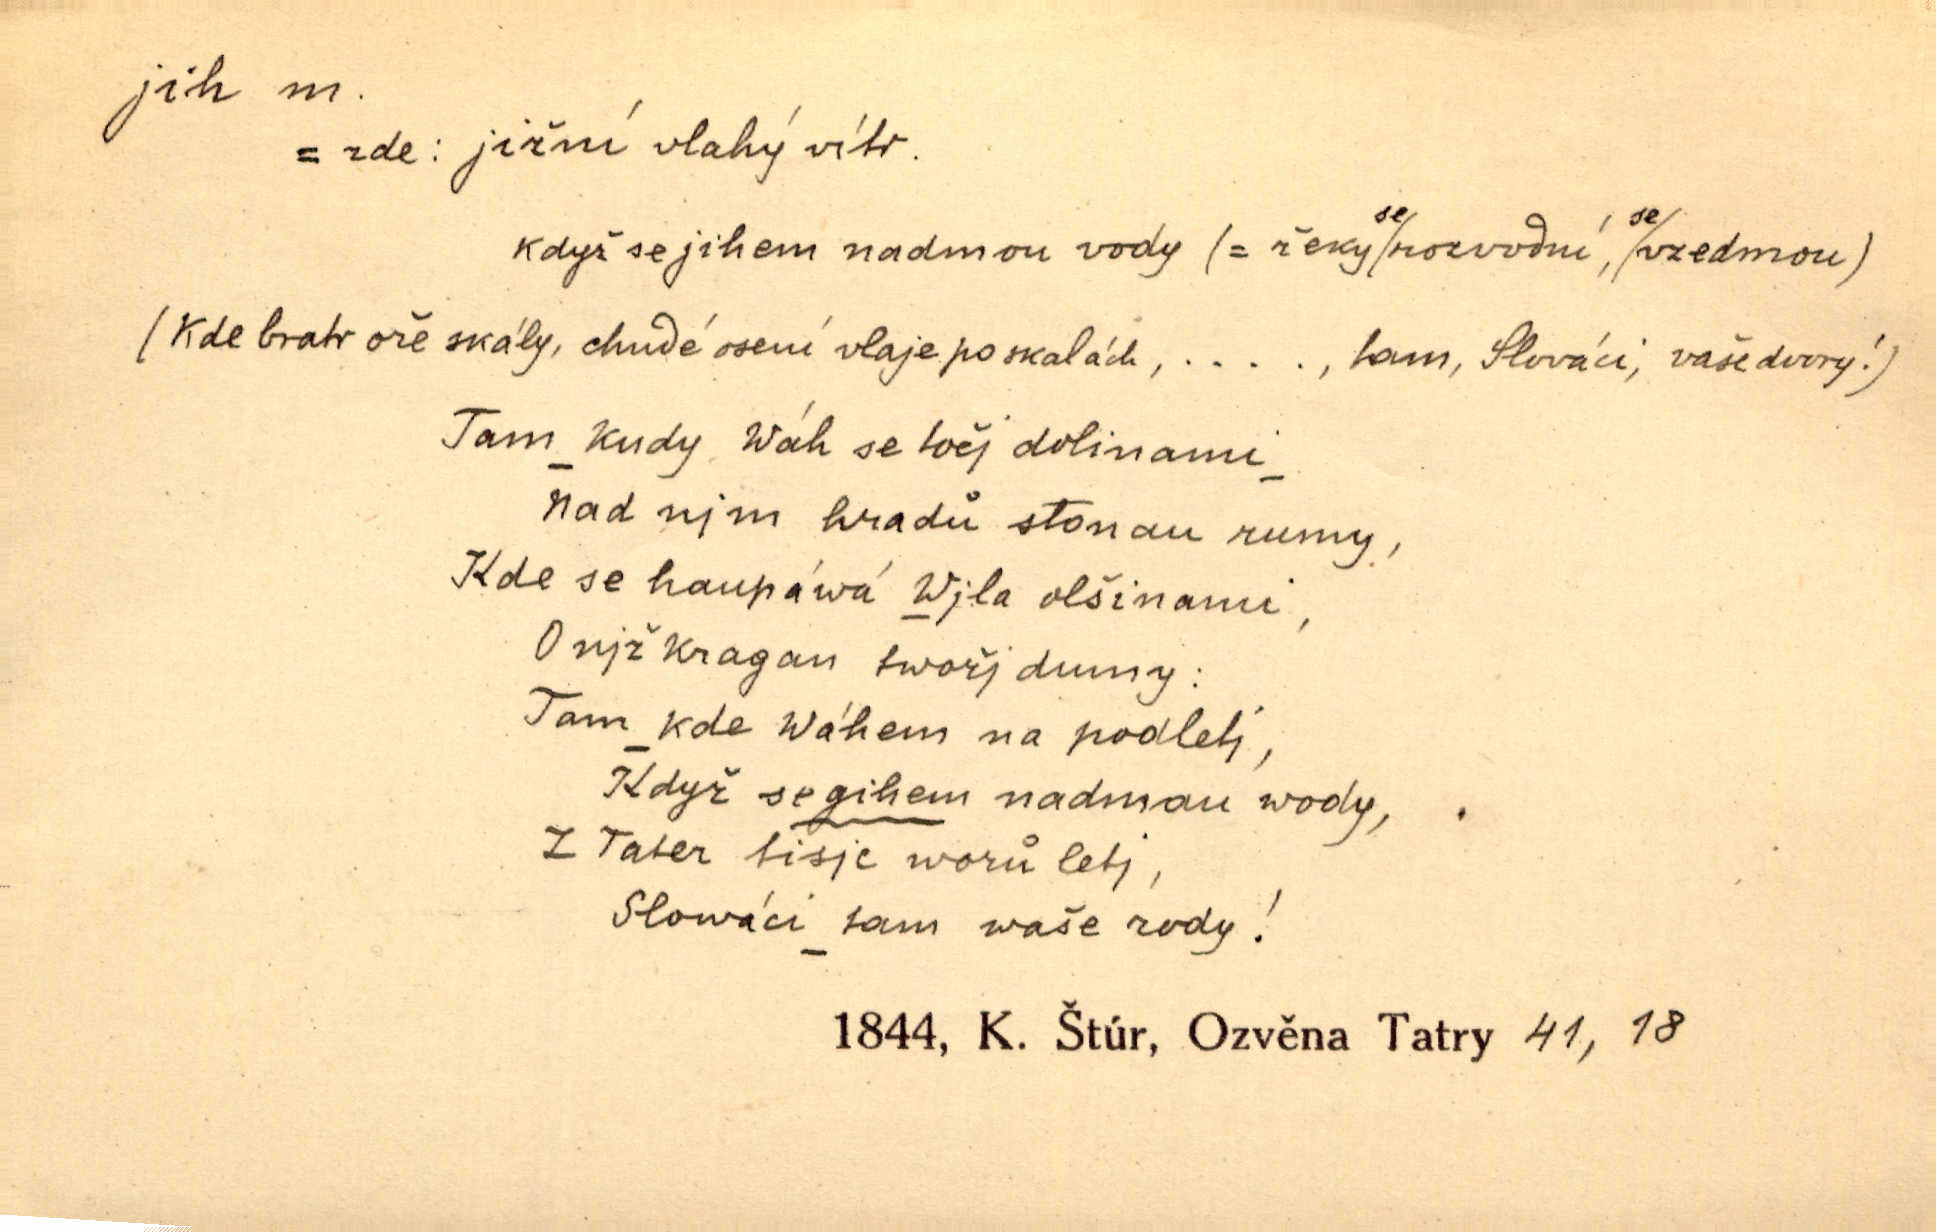 jih m.
= zde: jižní vlahý vítr.
když se jihem nadmou vody (= řeky se rozvodní, se vzedmou)
(Kde bratr oře skály, chudé osení vlaje po skalách, . . . ., tam, Slováci, vaše dvory!)
Tam_ kudy Wáh se točj dolinami_
Nad njm hradů stonau rumy,
Kde se haupáwá Wjla olšinami,
O njž kragan twořj dumy:
Tam_ kde Wáhem na podletj,
Když se gihem nadmau wody,
Z Tater tisje worů letj,
Slowáci_ tam waše rody!
1844, K. Štúr, Ozvěna Tatry 41, 18